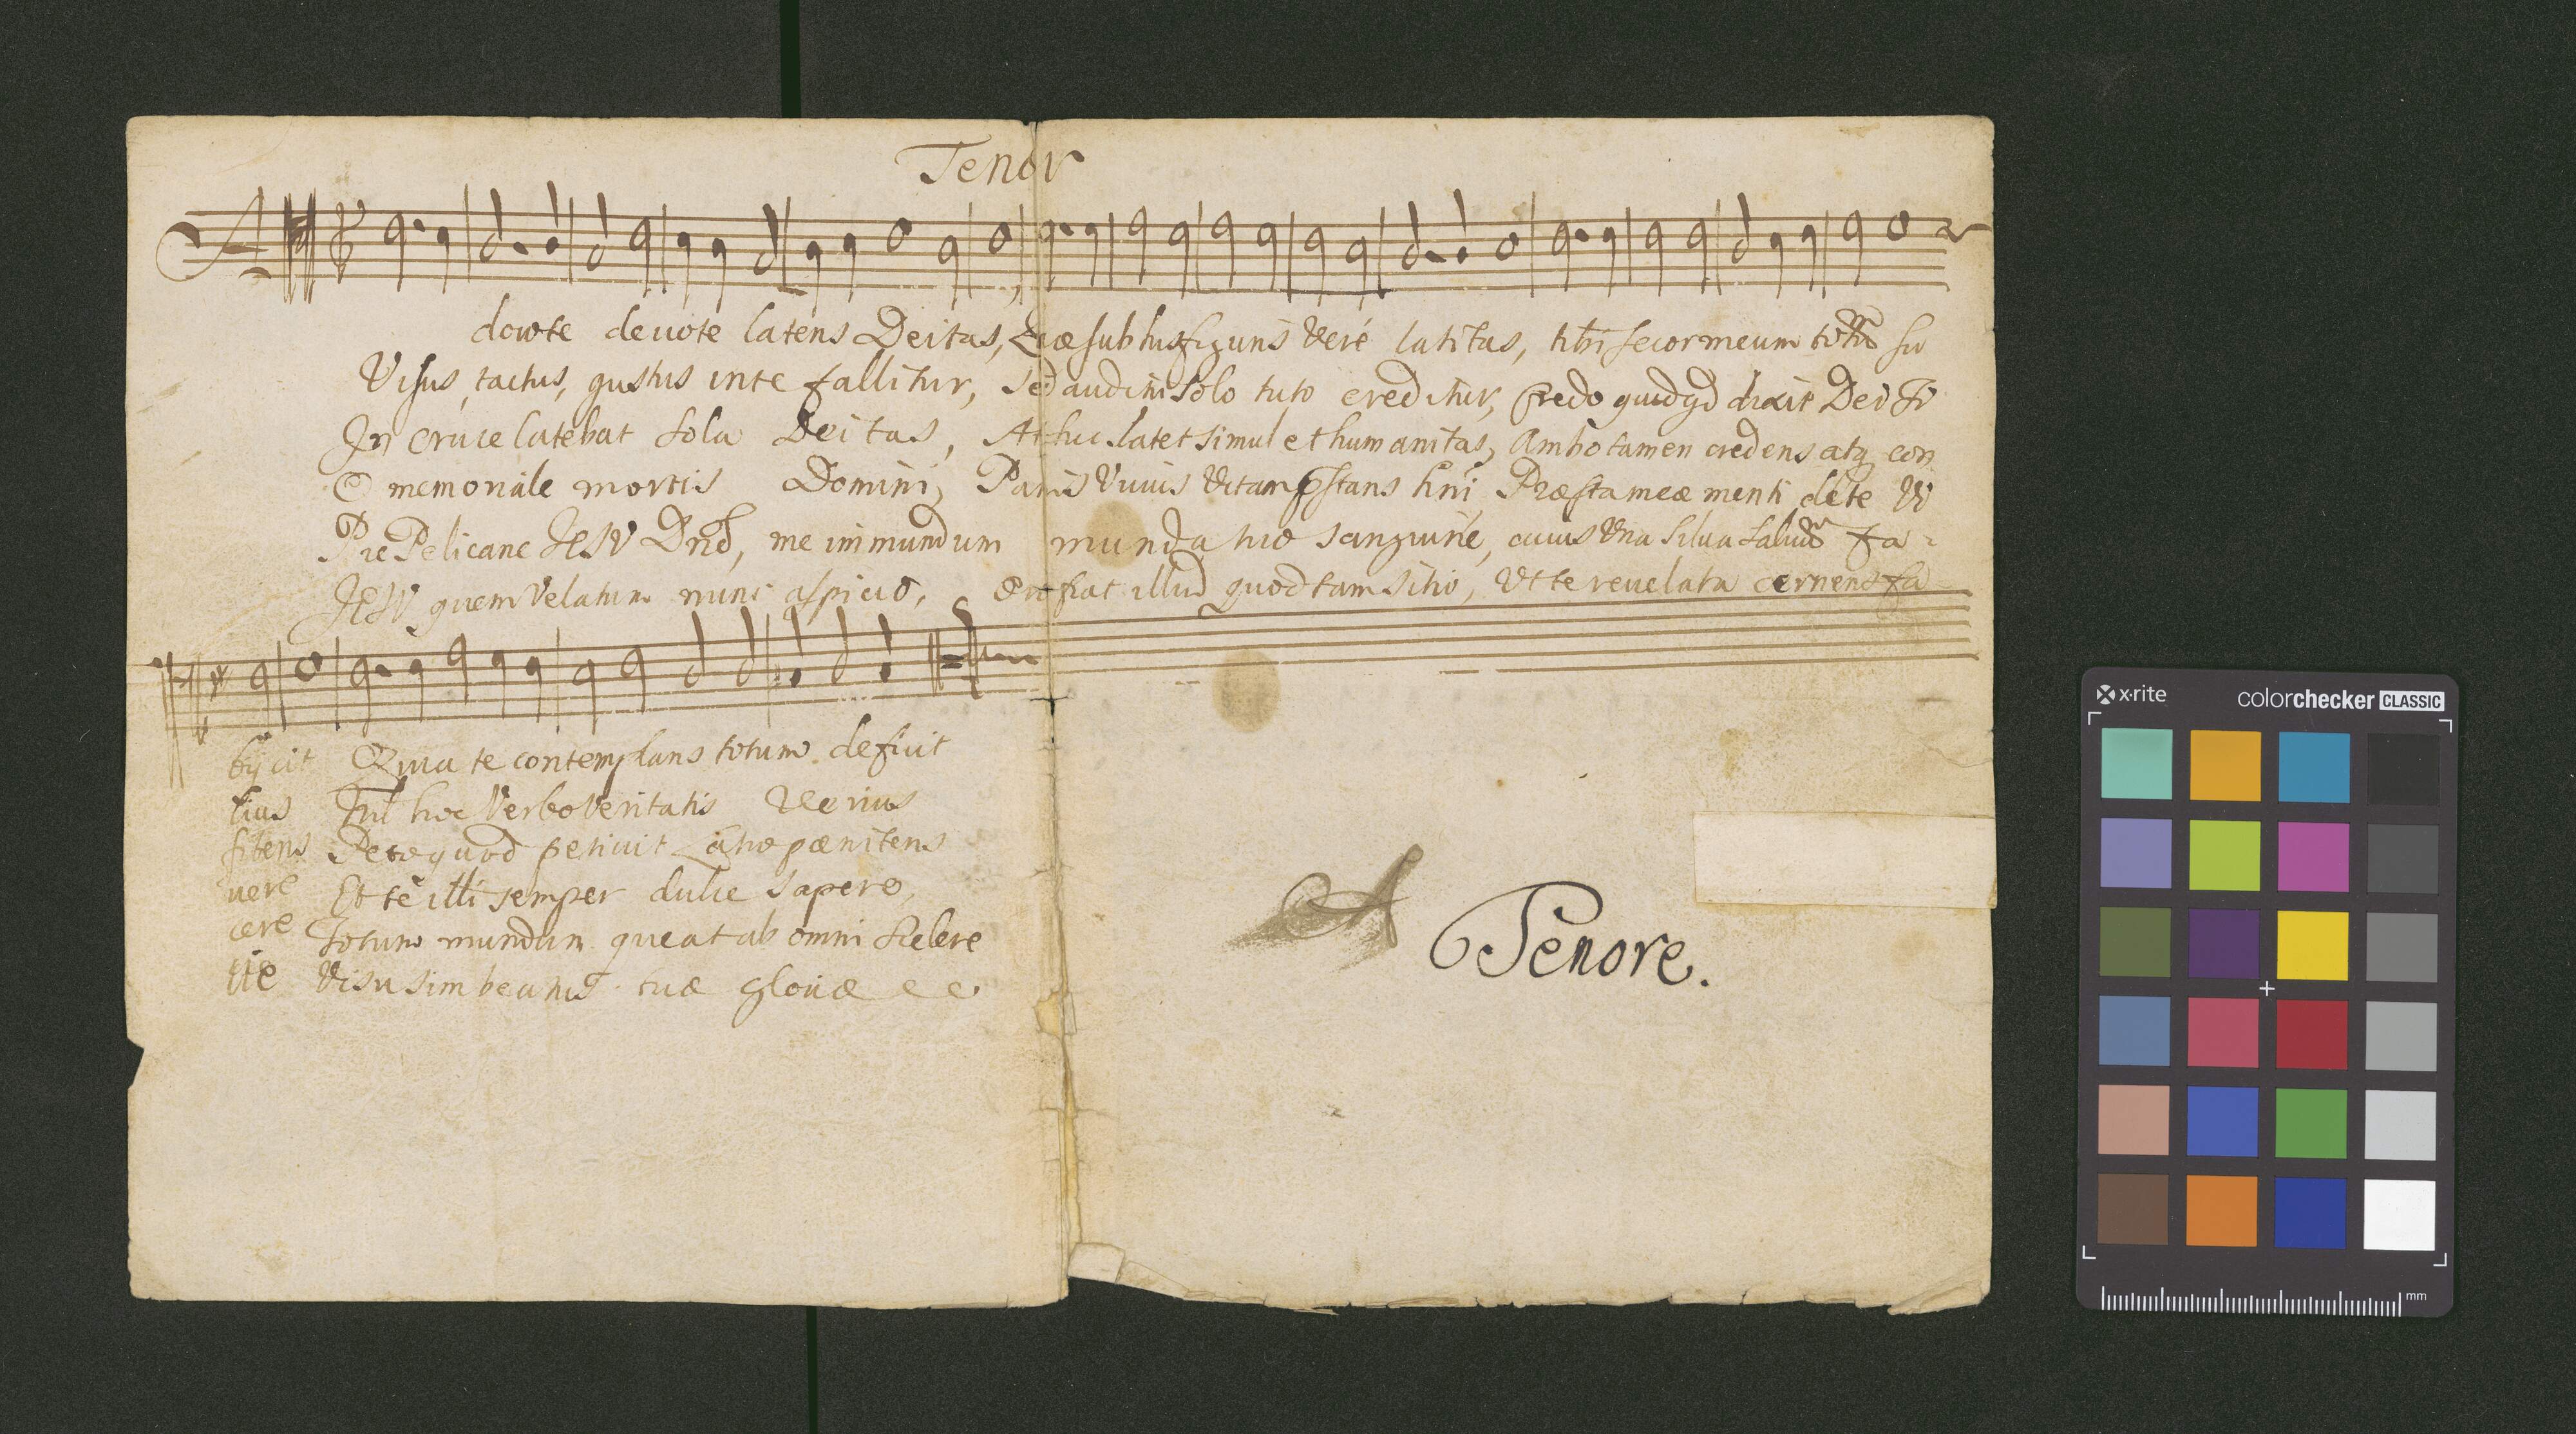 Tenor
A
dorote deuote latens Deitas, Quæ sub his figuris Veré latitas, tibi se cor meum totum su
Visus, tactus, gustus in te fallitur, Sed auditu solo tuto creditur, Credo quidqd dixit Dei Fi
In cruce latebat sola Deitas, At hic latet simul et humanitas, Ambo tamen credens atq con
O memoriale mortis Domini, Panis Viuus Vitam pstans hni, Præsta meæ menti de te Vi
Pie Pelicane JESV Dne, me immundum munda tuo sanguine, cuius Vna stilla saluum fa-
JESV quem Velatum nunc aspicio, Oro fiat illud quod tam sitio, Vt te reuelata cernens fa
bycit Quia te contemplans totum deficit
lius Nil hoc Verbo Veritatis Verius
fitens Peto quod petiuit Latro pænitens
uere Et te illi semper dulce sapere,
cere Totum mundum queat ab omni scelere
cie Visu sim beatus tuæ gloriæ
A
Tenore.
x·rite
colorchecker CLASSIC
mm